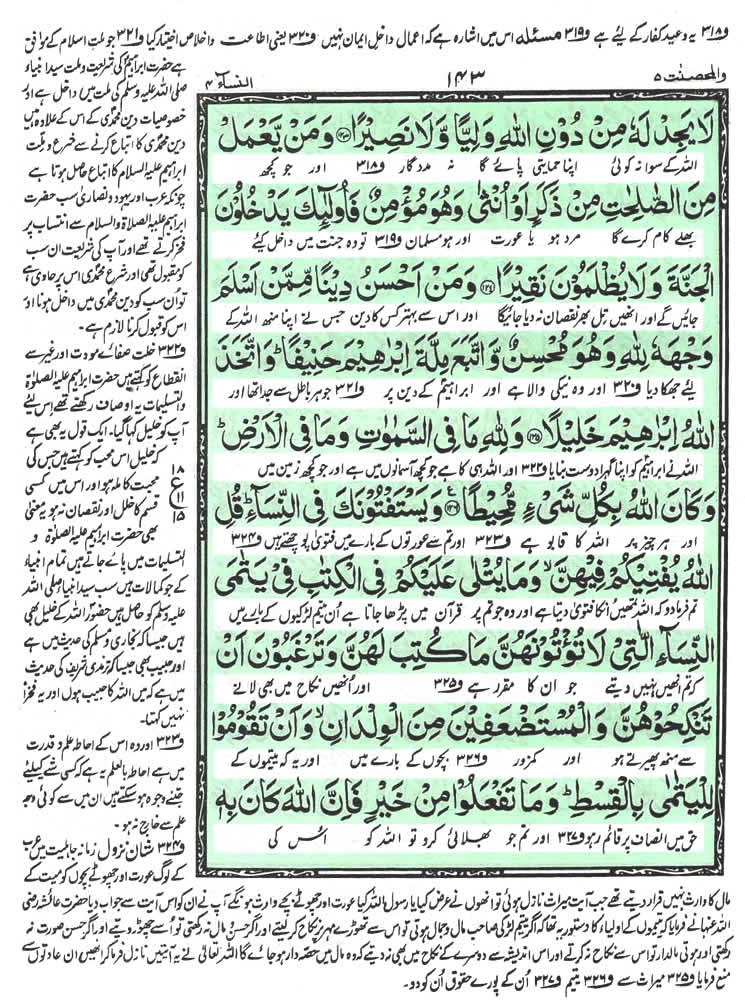 و٣١٨ یہ وعید کفار کے لیے ہے و٣١٩ مسئلہ اس میں اشارہ ہے کہ اعمال داخلِ ایمان نہیں و٣٢٠ یعنی اطاعت و اخلاص اختیار کیا و٣٢١ جو ملتِ اسلام کے موافق
والمحصنٰت ٥
١٤٣
النسآء ٤
لَا يَجِدْ لَهٗ مِنْ دُوْنِ اللّٰهِ وَلِيًّا وَّلَا نَصِيْرًا ﴿١٢٣﴾ وَمَنْ يَّعْمَلْ
اللہ کے سوا نہ کوئی اپنا حمایتی پائے گا نہ مددگار و٣١٨ اور جو کچھ
مِنَ الصّٰلِحٰتِ مِنْ ذَكَرٍ اَوْ اُنْثٰى وَهُوَ مُؤْمِنٌ فَاُولٰٓئِكَ يَدْخُلُوْنَ
بھلے کام کرے گا مرد ہو یا عورت اور ہو مسلمان و٣١٩ تو وہ جنت میں داخل کیے
الْجَنَّةَ وَلَا يُظْلَمُوْنَ نَقِيْرًا ﴿١٢٤﴾ وَمَنْ اَحْسَنُ دِيْنًا مِّمَّنْ اَسْلَمَ
جائیں گے اور انھیں تل بھر نقصان نہ دیا جائیگا اور اس سے بہتر کس کا دین جس نے اپنا منھ اللہ کے
وَجْهَهٗ لِلّٰهِ وَهُوَ مُحْسِنٌ وَّاتَّبَعَ مِلَّةَ اِبْرٰهِيْمَ حَنِيْفًا ۗ وَاتَّخَذَ
لیے جھکا دیا و٣٢٠ اور وہ نیکی والا ہے اور ابراہیم کے دین پر و٣٢١ جو ہر باطل سے جدا تھا اور
اللّٰهُ اِبْرٰهِيْمَ خَلِيْلًا ﴿١٢٥﴾ وَلِلّٰهِ مَا فِى السَّمٰوٰتِ وَمَا فِى الْاَرْضِ ؕ
اللہ نے ابراہیم کو اپنا گہرا دوست بنایا و٣٢٢ اور اللہ ہی کا ہے جو کچھ آسمانوں میں ہے اور جو کچھ زمین میں
وَكَانَ اللّٰهُ بِكُلِّ شَىْءٍ مُّحِيْطًا ﴿١٢٦﴾ وَيَسْتَفْتُوْنَكَ فِى النِّسَآءِ ؕ قُلِ
اور ہر چیز پر اللہ کا قابو ہے و٣٢٣ اور تم سے عورتوں کے بارے میں فتویٰ پوچھتے ہیں و٣٢٤
اللّٰهُ يُفْتِيْكُمْ فِيْهِنَّ ۙ وَمَا يُتْلٰى عَلَيْكُمْ فِى الْكِتٰبِ فِىْ يَتٰمَى
تم فرما دو کہ اللہ تمھیں ان کا فتویٰ دیتا ہے اور وہ جو تم پر قرآن میں پڑھا جاتا ہے اُن یتیم لڑکیوں کے بارے میں
النِّسَآءِ الّٰتِىْ لَا تُؤْتُوْنَهُنَّ مَا كُتِبَ لَهُنَّ وَتَرْغَبُوْنَ اَنْ
کہ تم انھیں نہیں دیتے جو ان کا مقرر ہے و٣٢٥ اور انھیں نکاح میں بھی لانے
تَنْكِحُوْهُنَّ وَالْمُسْتَضْعَفِيْنَ مِنَ الْوِلْدَانِ ۙ وَاَنْ تَقُوْمُوْا
سے منھ پھیرتے ہو اور کمزور و٣٢٦ بچوں کے بارے میں اور یہ کہ یتیموں کے
لِلْيَتٰمٰى بِالْقِسْطِ ؕ وَمَا تَفْعَلُوْا مِنْ خَيْرٍ فَاِنَّ اللّٰهَ كَانَ بِهٖ
حق میں انصاف پر قائم رہو و٣٢٧ اور تم جو بھلائی کرو تو اللہ کو اُس کی
ہے حضرت ابراہیم کی شریعت و ملت سید انبیاء
صلی اللہ علیہ وسلم کی ملت میں داخل ہے اور
خصوصیات دین محمدی کے اس کے علاوہ ہیں
دین محمدی کا اتباع کرنے سے شرع و ملت
ابراہیم علیہ السلام کا اتباع حاصل ہوتا ہے
چونکہ عرب اور یہود و نصاریٰ سب حضرت
ابراہیم علیہ الصلاۃ والسلام سے انتساب پر
فخر کرتے تھے اور آپ کی شریعت ان سب
کو مقبول تھی اور شرع محمدی اس پر حاوی ہے
تو اُن سب کو دین محمدی میں داخل ہونا اور
اس کو قبول کرنا لازم ہے۔
و٣٢٢ خلت صفائے مودت اور غیر سے
انقطاع کو کہتے ہیں حضرت ابراہیم علیہ الصلوٰۃ
والتسلیمات یہ اوصاف رکھتے تھے اس لئے
آپ کو خلیل کہا گیا۔ ایک قول یہ بھی ہے
کہ خلیل اس محب کو کہتے ہیں جس کی
محبت کاملہ ہو اور اس میں کسی
قسم کا خلل اور نقصان نہ ہو یہ معنیٰ
بھی حضرت ابراہیم علیہ الصلوٰۃ و
١٨
ع
١١
١٥
التسلیمات میں پائے جاتے ہیں تمام انبیاء
کے جو کمالات ہیں سب سید انبیاء صلی اللہ
علیہ وسلم کو حاصل ہیں حضور اللہ کے خلیل بھی
ہیں جیسا کہ بخاری و مسلم کی حدیث میں ہے
اور حبیب بھی جیسا کہ ترمذی شریف کی حدیث
میں ہے کہ میں اللہ کا حبیب ہوں اور یہ فخراً
نہیں کہتا۔
و٣٢٣ اور وہ اس کے احاطہ علم و قدرت
میں ہے احاطہ بالعلم یہ ہے کہ کسی شے کیلئے
جتنے وجوہ ہو سکتے ہیں ان میں سے کوئی وجہ
علم سے خارج نہ ہو۔
و٣٢٤ شان نزول زمانہ جاہلیت میں عرب
کے لوگ عورت اور چھوٹے بچوں کو میت کے
مال کا وارث نہیں قرار دیتے تھے جب آیت میراث نازل ہوئی تو انھوں نے عرض کیا یا رسول اللہ کیا عورت اور چھوٹے بچے وارث ہوں گے آپ نے اُن کو اس آیت سے جواب دیا حضرت عائشہ رضی
اللہ عنہا نے فرمایا کہ یتیموں کے اولیاء کا دستور یہ تھا کہ اگر یتیم لڑکی صاحب مال و جمال ہوتی تو اس سے تھوڑے مہر پر نکاح کر لیتے اور اگر حسن و مال نہ رکھتی تو اُسے چھوڑ دیتے اور اگر حسن صورت نہ
رکھتی اور ہوتی مالدار تو اس سے نکاح نہ کرتے اور اس اندیشہ سے دوسرے کے نکاح میں بھی نہ دیتے کہ وہ مال میں حصہ دار ہو جائے گا اللہ تعالیٰ نے یہ آیتیں نازل فرما کر انھیں ان عادتوں سے
منع فرمایا و٣٢٥ میراث سے و٣٢٦ یتیم و٣٢٧ اُن کے پورے حقوق اُن کو دو۔